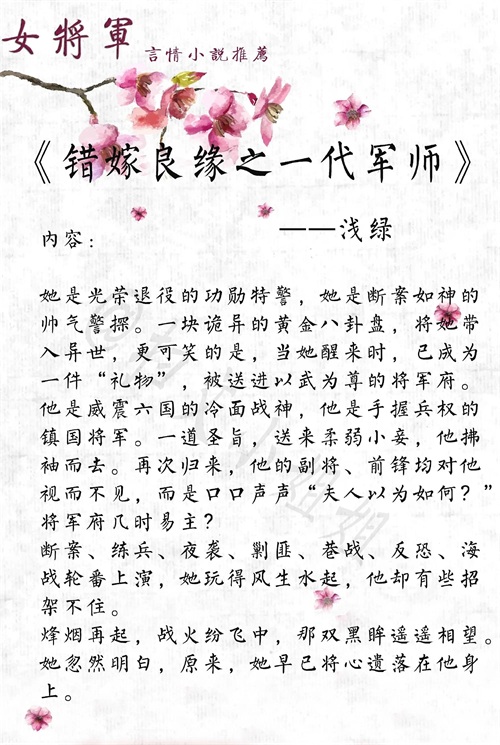 女將軍
言情小說推薦
《错嫁良缘之一代军师》
——浅绿
内容：
她是光荣退役的功勋特警，她是断案如神的
帅气警探。一块诡异的黄金八卦盘，将她带
入异世，更可笑的是，当她醒来时，已成为
一件“礼物”，被送进以武为尊的将军府。
他是威震六国的冷面战神，他是手握兵权的
镇国将军。一道圣旨，送来柔弱小妾，他拂
袖而去。再次归来，他的副将、前锋均对他
视而不见，而是口口声声“夫人以为如何？”
将军府几时易主？
断案、练兵、夜袭、剿匪、巷战、反恐、海
战轮番上演，她玩得风生水起，他却有些招
架不住。
烽烟再起，战火纷飞中，那双黑眸遥遥相望。
她忽然明白，原来，她早已将心遗落在他身
上。